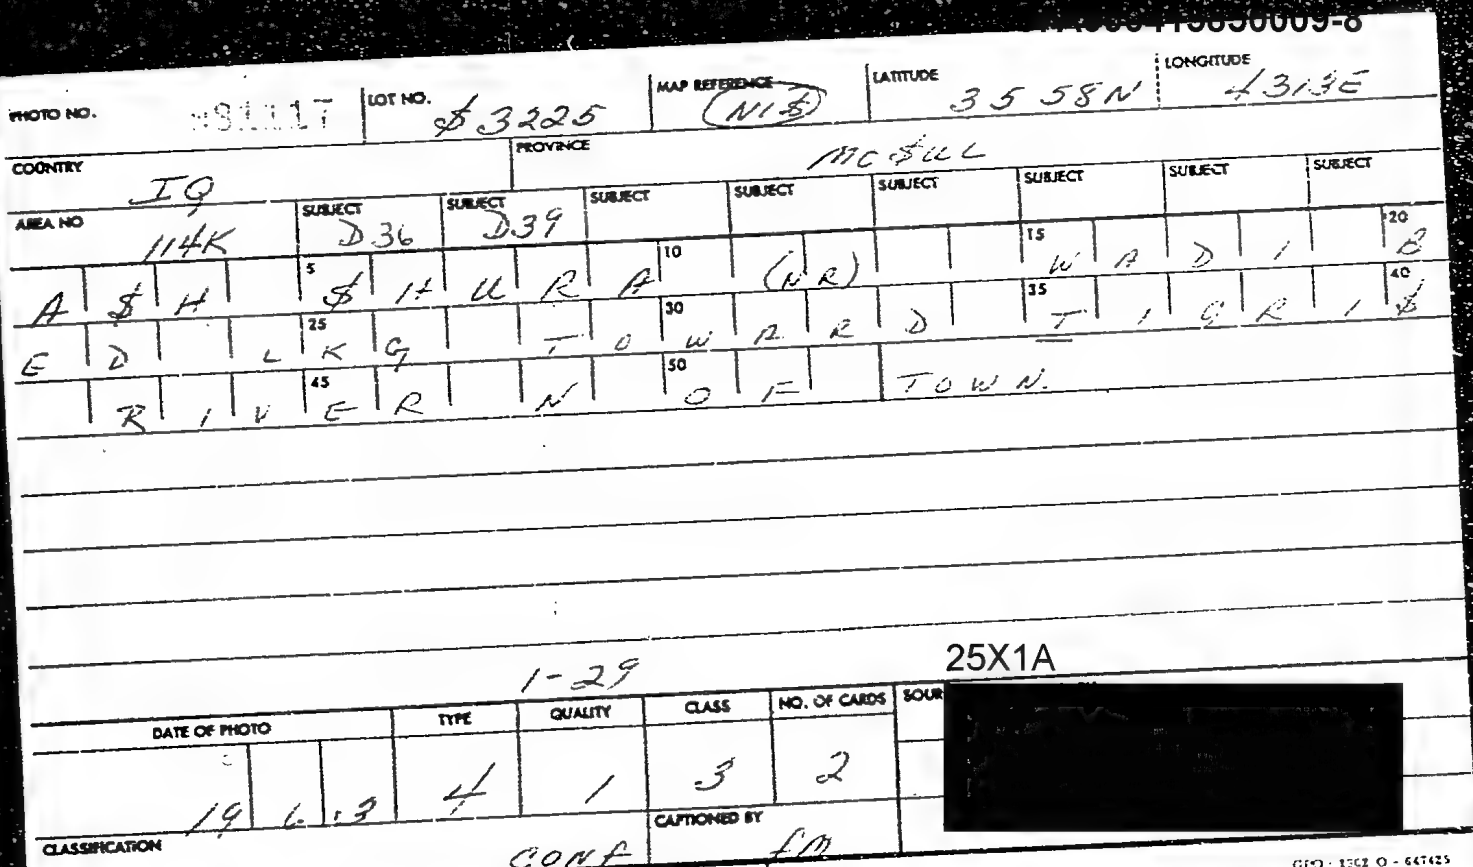 0009-8
PHOTO NO. LOT NO. $3225 MAP REFERENCE NI$ LATITUDE 35 58N LONGITUDE 4313E
COUNTRY IQ PROVINCE MO$UL
AREA NO 114K SUBJECT D36 SUBJECT D39 SUBJECT SUBJECT SUBJECT SUBJECT SUBJECT SUBJECT
5 10 15 20
A $ H $ H U R A (NR) W A D I B
25 30 35 40
E D L K G T O W A R D T I G R I $
45 50
R I V E R N O F TOWN.
1-29
25X1A
DATE OF PHOTO TYPE QUALITY CLASS NO. OF CARDS SOUR
19 6 3 4 1 3 2
CLASSIFICATION CONF CAPTIONED BY fm